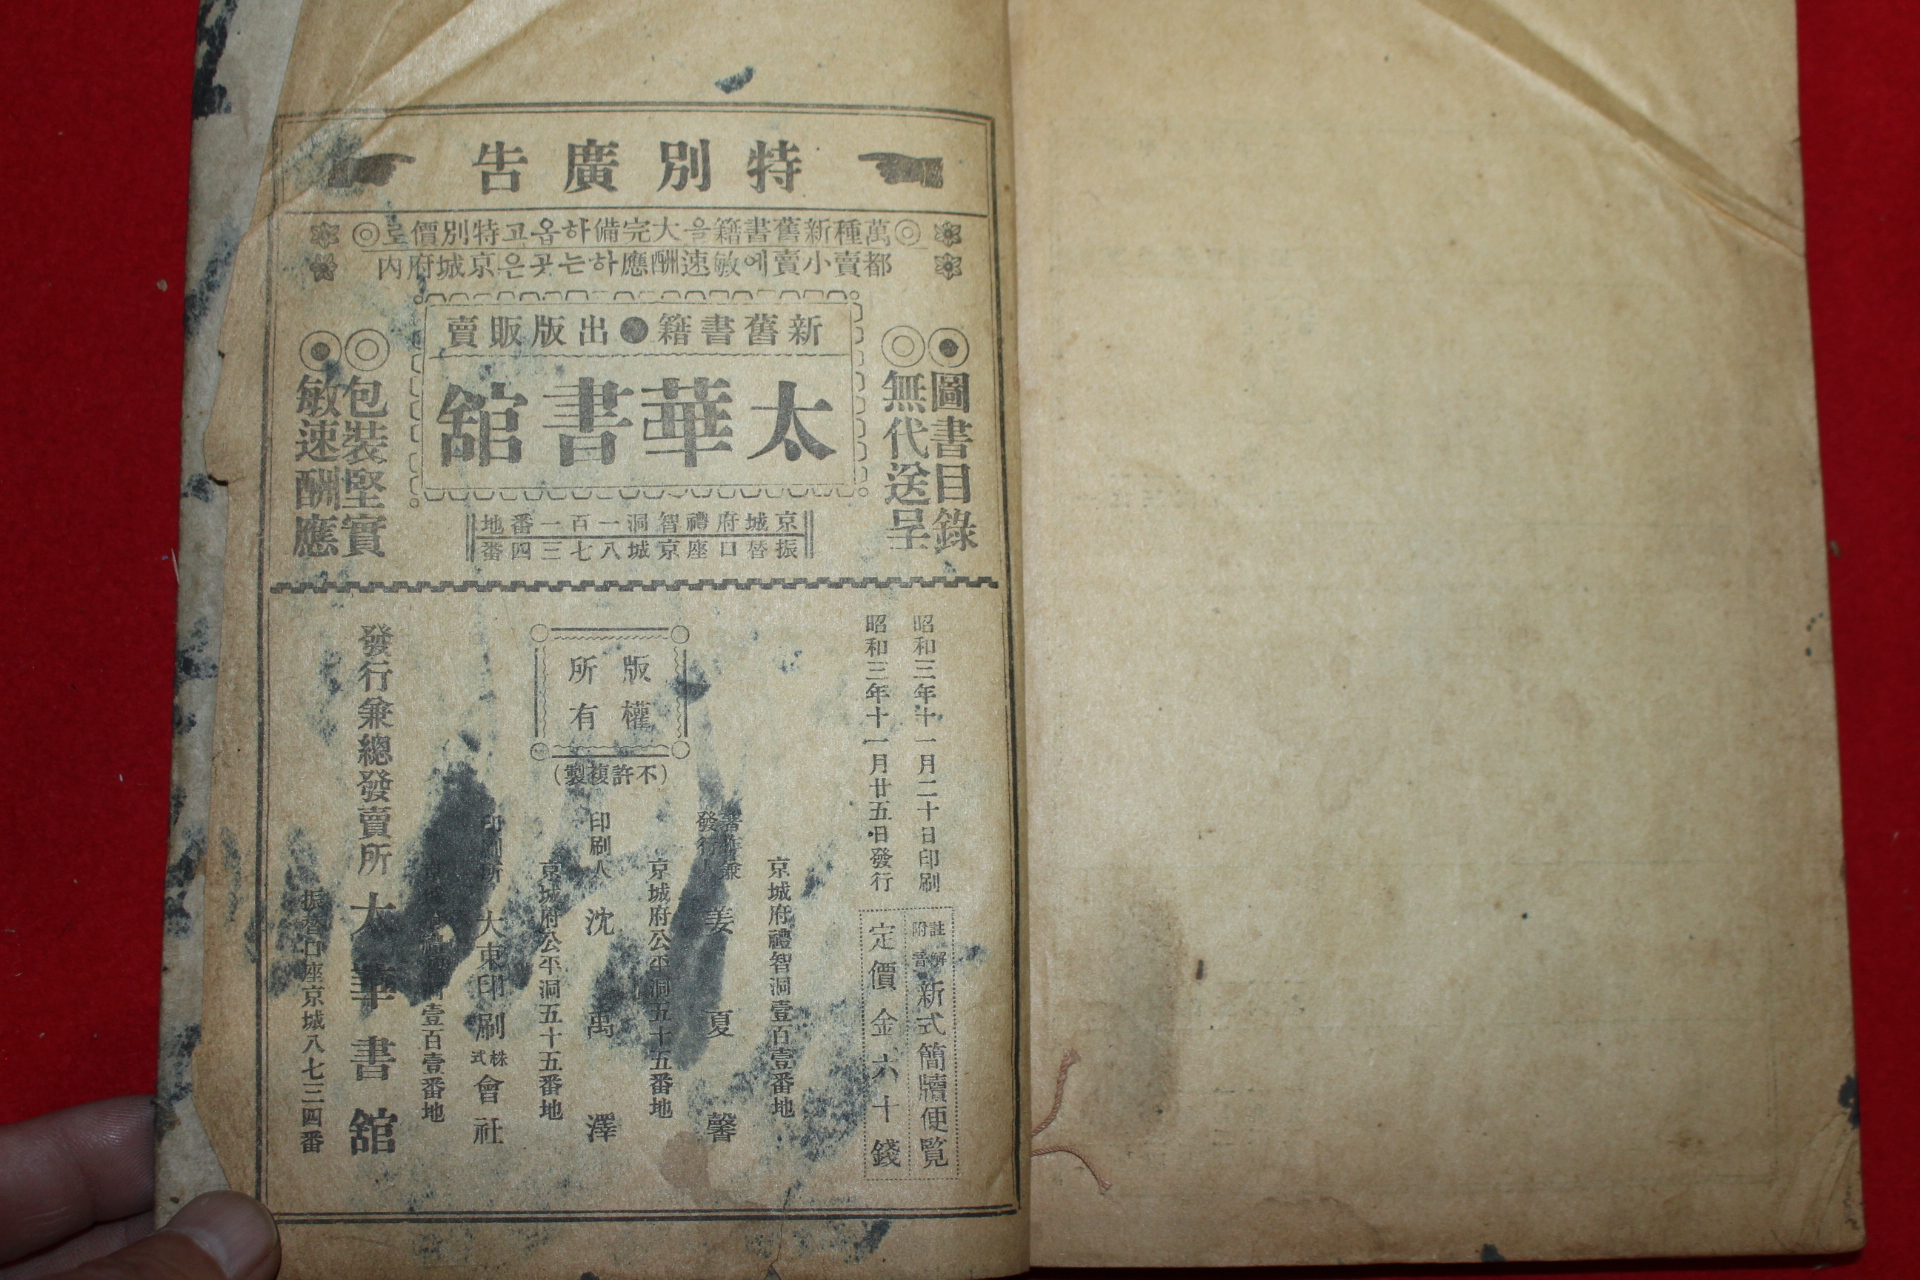 特別廣告
◎萬種新舊書籍을大完備하옴고特別價로◎
都賣小賣에敏速酬應하는곳은京城府內
◉圖書目錄
◎無代送呈
新舊書籍●出版販賣
太華書舘
京城府禮智洞一百一番地
振替口座京城八七三四番
◎包裝堅實
◉敏速酬應
昭和三年十一月二十日印刷
昭和三年十一月廿五日發行
註解附音 新式簡牘便覧
定價金六十錢
版權所有
(不許複製)
京城府禮智洞壹百壹番地
著作兼發行 姜夏馨
京城府公平洞五十五番地
印刷人 沈禹澤
京城府公平洞五十五番地
印刷所 大東印刷株式會社
壹百壹番地
發行兼總發賣所 太華書舘
振替口座京城八七三四番